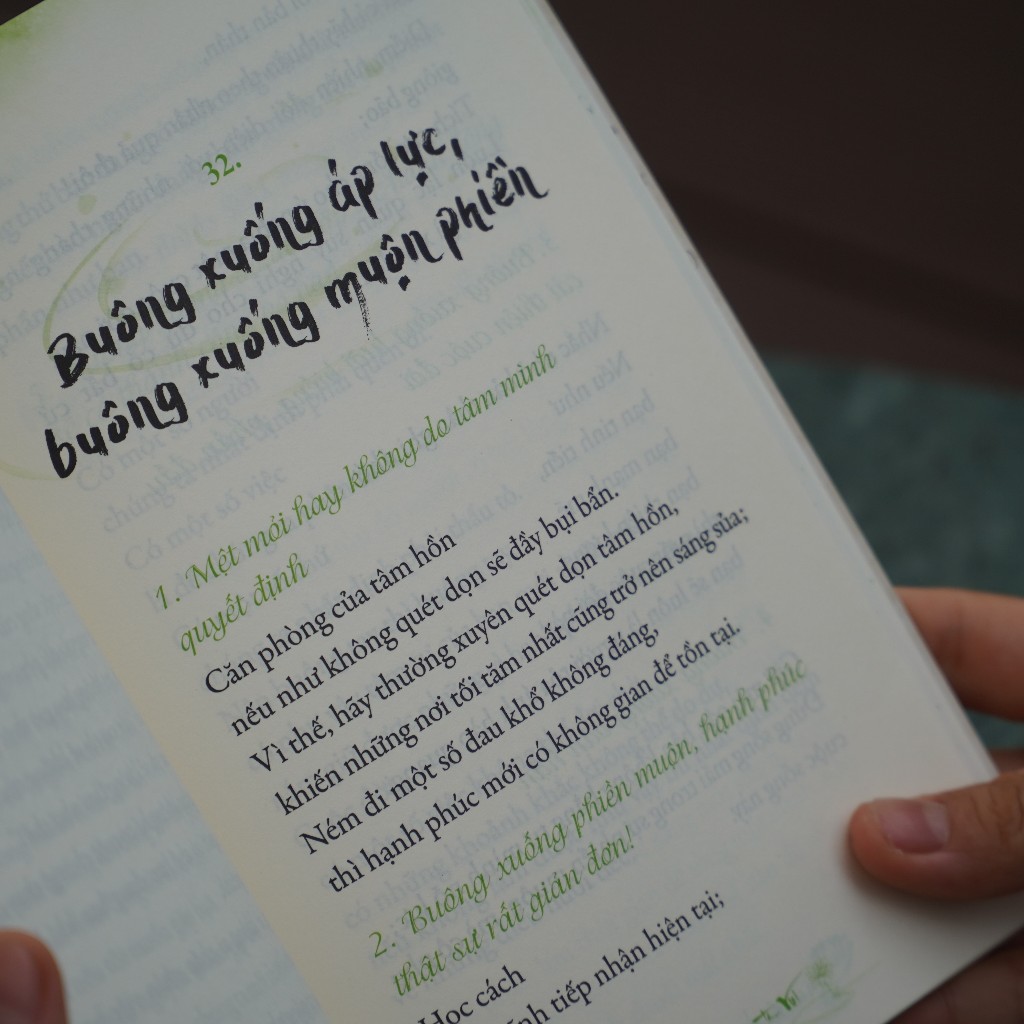 32.
Buông xuống áp lực,
buông xuống muộn phiền
1. Mệt mỏi hay không do tâm mình
quyết định
Căn phòng của tâm hồn
nếu như không quét dọn sẽ đầy bụi bẩn.
Vì thế, hãy thường xuyên quét dọn tâm hồn,
khiến những nơi tối tăm nhất cũng trở nên sáng sủa;
Ném đi một số đau khổ không đáng,
thì hạnh phúc mới có không gian để tồn tại.
2. Buông xuống phiền muộn, hạnh phúc
thật sự rất giản đơn!
Học cách
tiếp nhận hiện tại;